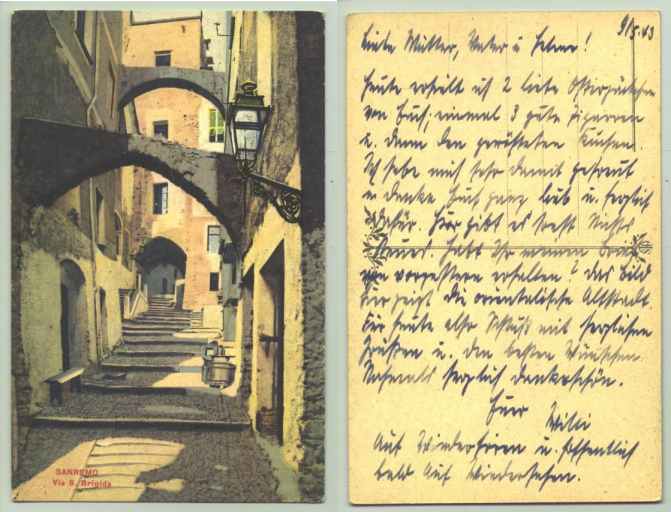 SANREMO
Via S. Brigida
9/5.43
Liebe Mutter, Vater u. Helmer!
Heute erhielt ich 2 liebe Osterpäckchen
von Euch; einmal 3 gute Zigarren
u. dann den gerösteten Kuchen.
Ich habe mich sehr damit gefreut
u. danke Euch ganz lieb u. herzlich
dafür. Hier gibt es sonst Nichts
Neues. Habt Ihr meinen Brief
von vorgestern erhalten? Das Bild
hier zeigt die orientalische Altstadt
Für heute also Schluß mit herzlichen
Grüßen u. den besten Wünschen.
Nochmals herzlich dankeschön.
Euer Willi
Auf Wiederhören u. hoffentlich
bald Auf Wiedersehen.